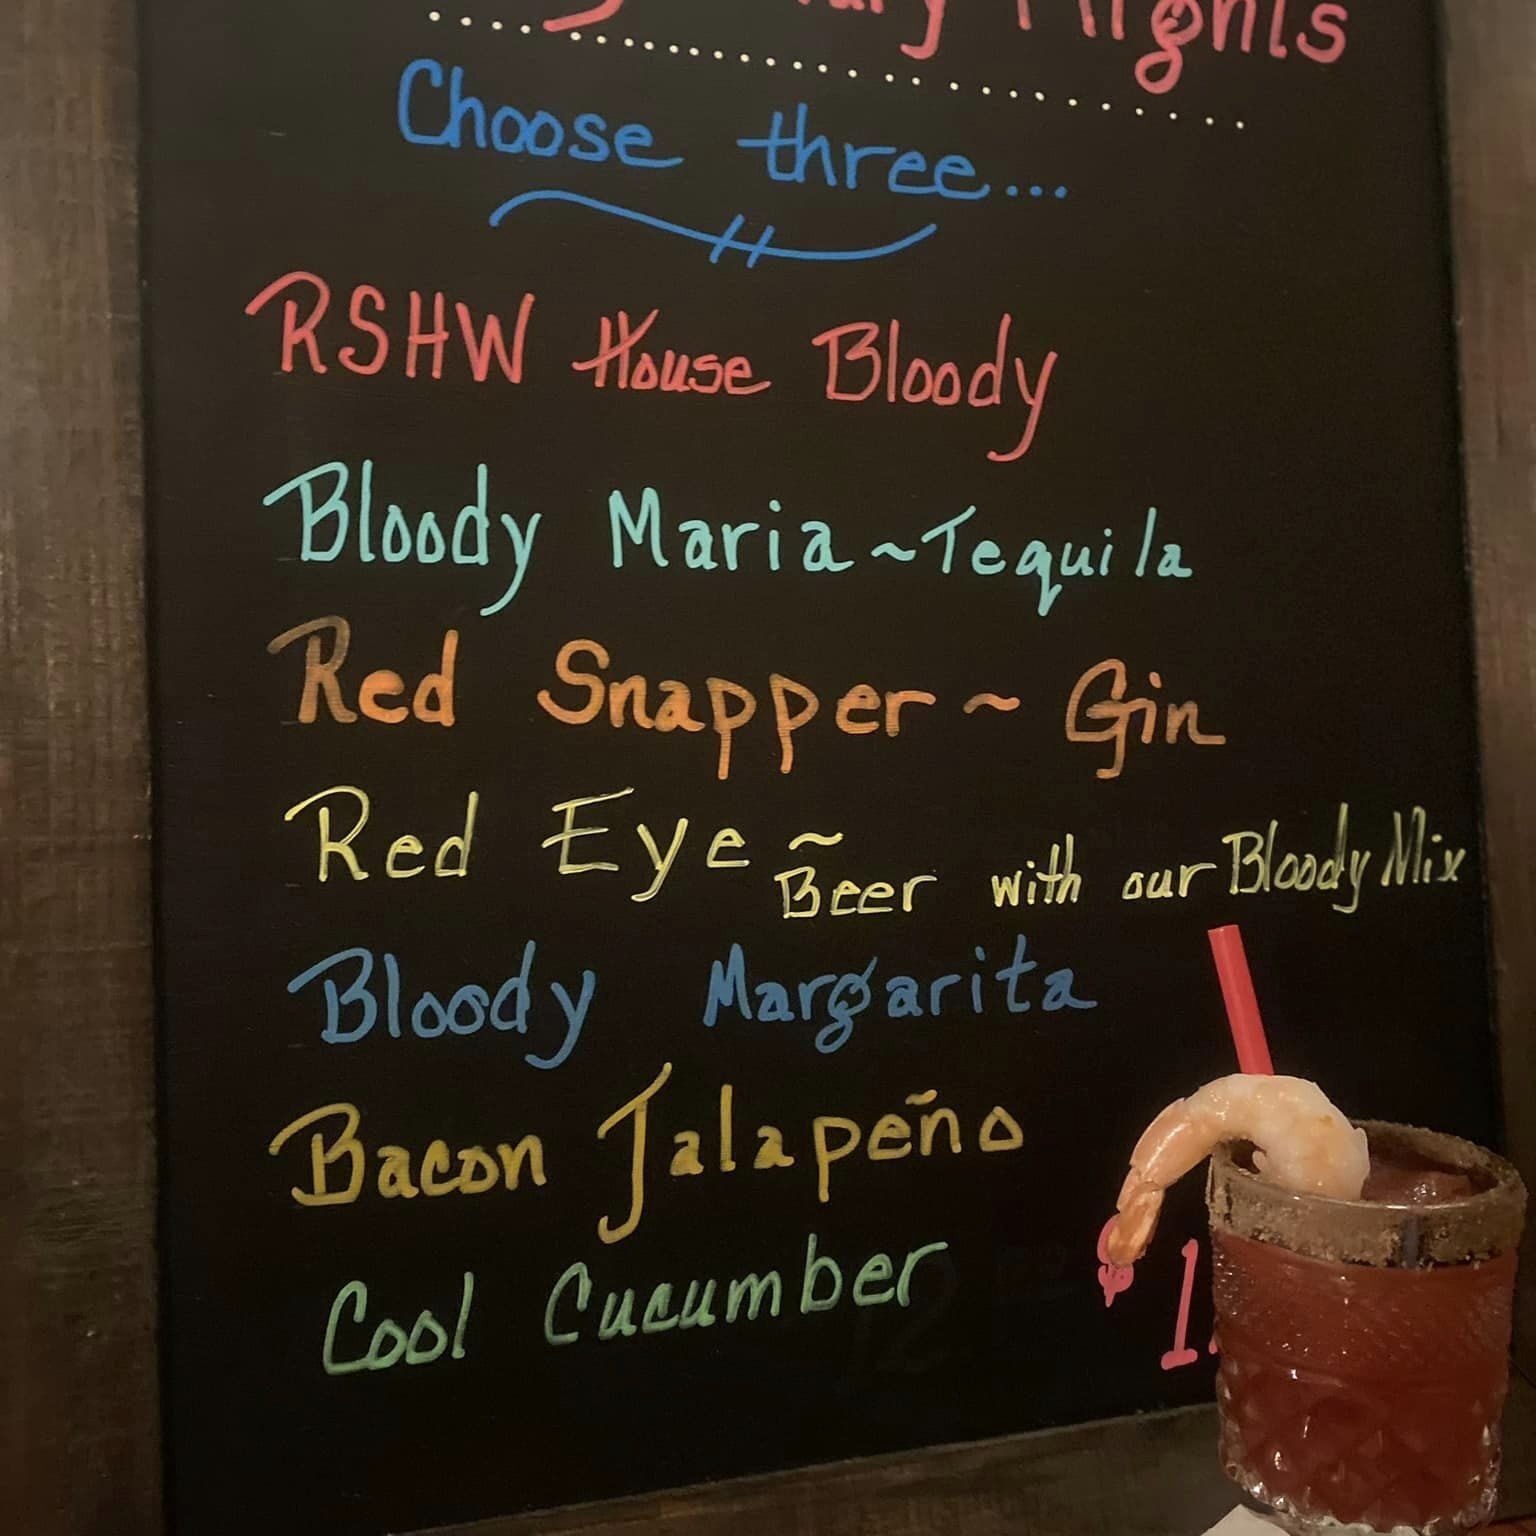 Flights
Choose three...
RSHW House Bloody
Bloody Maria ~ Tequila
Red Snapper ~ Gin
Red Eye ~ Beer with our Bloody Mix
Bloody Margarita
Bacon Jalapeño
Cool Cucumber